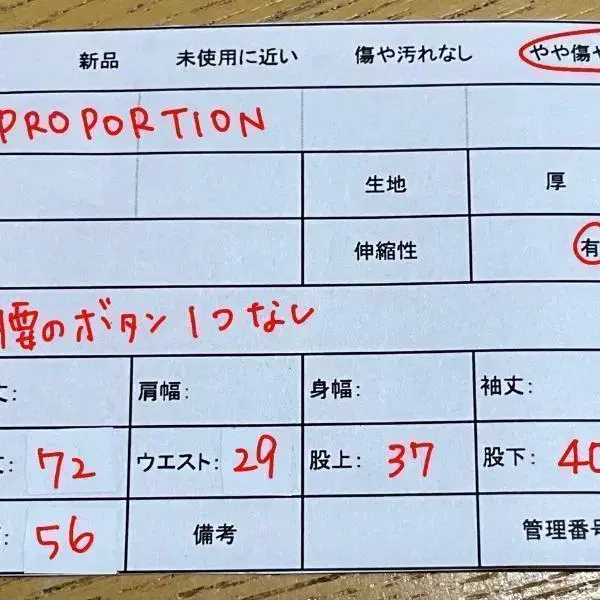 新品 未使用に近い 傷や汚れなし やや傷や
PROPORTION
生地 厚
伸縮性 有
腰のボタン1つなし
丈: 肩幅: 身幅: 袖丈:
丈: 72 ウエスト: 29 股上: 37 股下: 40
: 56 備考 管理番号